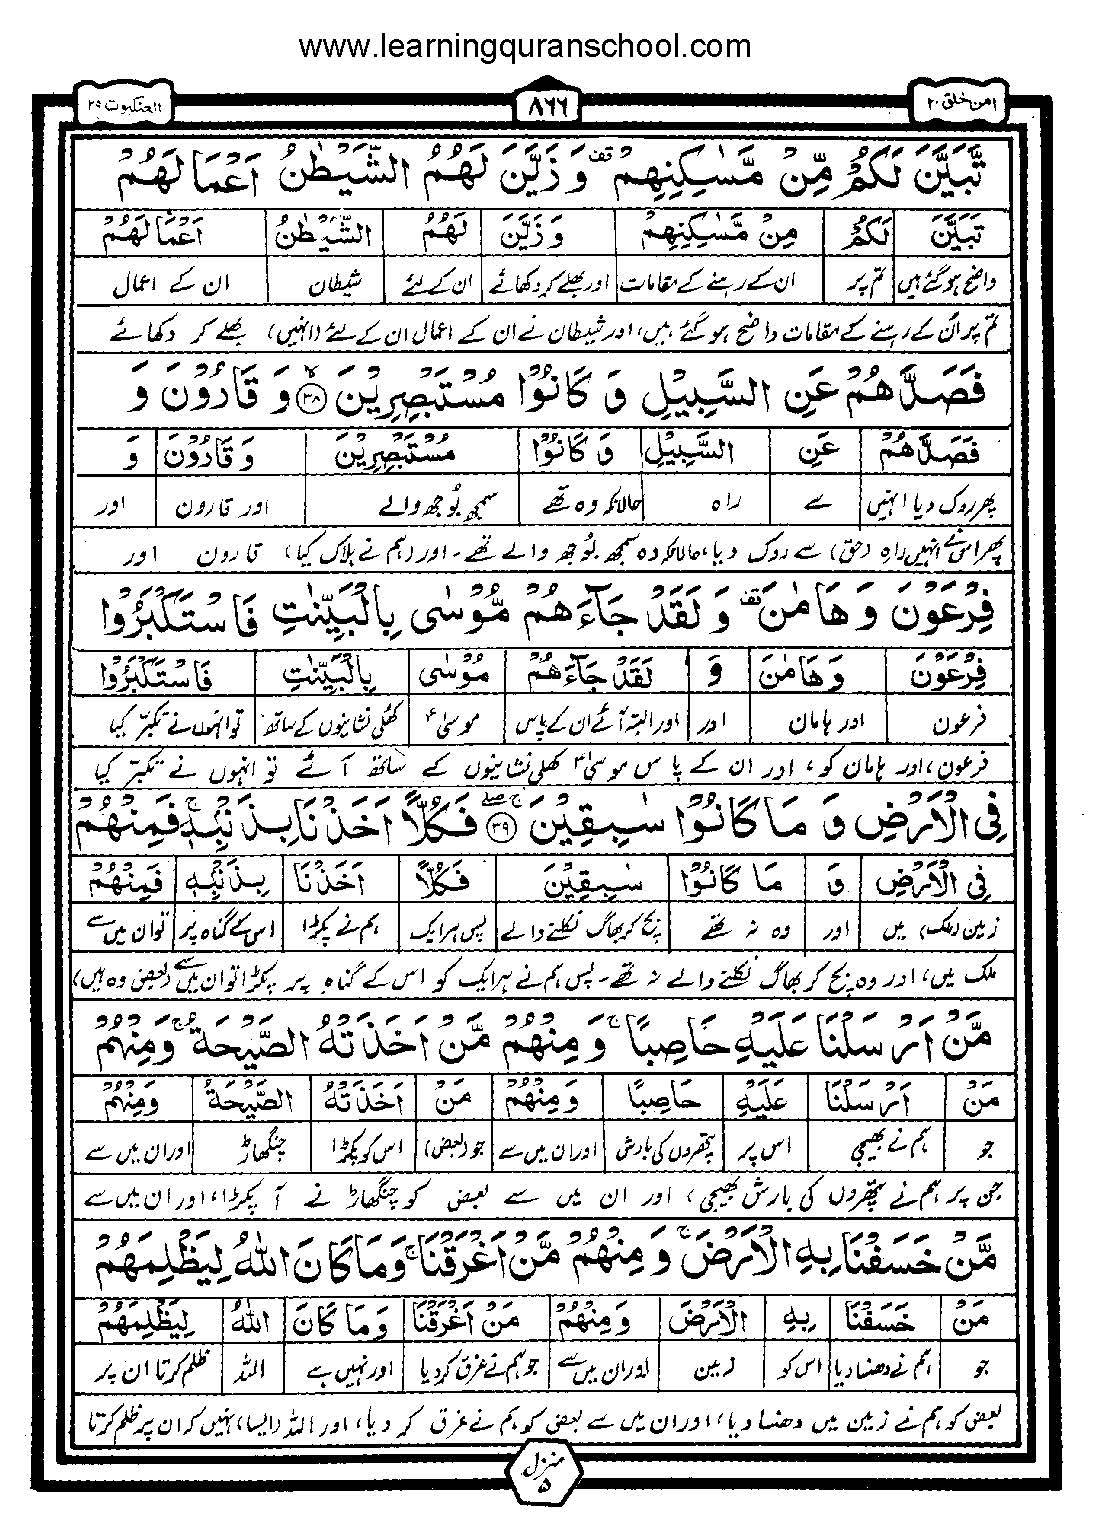 www.learningquranschool.com
امن خلق ۲۰ ۸۶۶ العنکبوت ۲۹
تَّبَيَّنَ لَكُمْ مِّنْ مَّسٰكِنِهِمْ ۫ وَ زَيَّنَ لَهُمُ الشَّيْطٰنُ اَعْمَالَهُمْ
تَبَيَّنَ لَكُمْ مِنْ مَّسٰكِنِهِمْ وَ زَيَّنَ لَهُمُ الشَّيْطٰنُ اَعْمَالَهُمْ
واضح ہو گئے ہیں تم پر ان کے رہنے کے مقامات اور بھلے کر دکھائے ان کے لئے شیطان ان کے اعمال
تم پر ان کے رہنے کے مقامات واضح ہو گئے ہیں، اور شیطان نے ان کے اعمال ان کے لئے (انہیں) بھلے کر دکھائے
فَصَدَّهُمْ عَنِ السَّبِيْلِ وَ كَانُوْا مُسْتَبْصِرِيْنَ ۙ ۳۸ وَ قَارُوْنَ وَ
فَصَدَّهُمْ عَنِ السَّبِيْلِ وَ كَانُوْا مُسْتَبْصِرِيْنَ وَ قَارُوْنَ وَ
پھر روک دیا انہیں سے راہ حالانکہ وہ تھے سمجھ بُوجھ والے اور قارون اور
پھر اس نے انہیں راہِ (حق) سے روک دیا، حالانکہ وہ سمجھ بُوجھ والے تھے۔ اور (ہم نے ہلاک کیا) قارون اور
فِرْعَوْنَ وَ هَامٰنَ ۫ وَ لَقَدْ جَآءَهُمْ مُّوْسٰى بِالْبَيِّنٰتِ فَاسْتَكْبَرُوْا
فِرْعَوْنَ وَ هَامٰنَ وَ لَقَدْ جَآءَهُمْ مُوْسٰى بِالْبَيِّنٰتِ فَاسْتَكْبَرُوْا
فرعون اور ہامان اور اور البتہ آئے ان کے پاس موسیٰؑ کھلی نشانیوں کے ساتھ تو انہوں نے تکبّر کیا
فرعون، اور ہامان کو، اور ان کے پاس موسیٰؑ کھلی نشانیوں کے ساتھ آئے تو انہوں نے تکبّر کیا
فِى الْاَرْضِ وَ مَا كَانُوْا سٰبِقِيْنَ ۚۖ ۳۹ فَكُلًّا اَخَذْنَا بِذَنْۢبِهٖ ۚ فَمِنْهُمْ
فِى الْاَرْضِ وَ مَا كَانُوْا سٰبِقِيْنَ فَكُلًّا اَخَذْنَا بِذَنْۢبِهٖ فَمِنْهُمْ
زمین (ملک) میں اور وہ نہ تھے بچ کر بھاگ نکلنے والے پس ہر ایک ہم نے پکڑا اس کے گناہ پر تو ان میں سے
ملک میں، اور وہ بچ کر بھاگ نکلنے والے نہ تھے۔ پس ہم نے ہر ایک کو اس کے گناہ پر پکڑا تو ان میں سے (بعض وہ ہیں)
مَّنْ اَرْسَلْنَا عَلَيْهِ حَاصِبًا ۚ وَ مِنْهُمْ مَّنْ اَخَذَتْهُ الصَّيْحَةُ ۚ وَمِنْهُمْ
مَنْ اَرْسَلْنَا عَلَيْهِ حَاصِبًا وَ مِنْهُمْ مَنْ اَخَذَتْهُ الصَّيْحَةُ وَمِنْهُمْ
جو ہم نے بھیجی اس پر پتھروں کی بارش اور ان میں سے جو (بعض) اس کو پکڑا چنگھاڑ اور ان میں سے
جن پر ہم نے پتھروں کی بارش بھیجی، اور ان میں سے بعض کو چنگھاڑ نے آ پکڑا، اور ان میں سے
مَّنْ خَسَفْنَا بِهِ الْاَرْضَ ۚ وَ مِنْهُمْ مَّنْ اَغْرَقْنَا ۚ وَمَا كَانَ اللّٰهُ لِيَظْلِمَهُمْ
مَنْ خَسَفْنَا بِهِ الْاَرْضَ وَ مِنْهُمْ مَنْ اَغْرَقْنَا وَمَا كَانَ اللّٰهُ لِيَظْلِمَهُمْ
جو ہم نے دھنسا دیا اس کو زمین اور ان میں سے جو ہم نے غرق کر دیا اور نہیں ہے اللہ ظلم کرتا ان پر
بعض کو ہم نے زمین میں دھنسا دیا، اور ان میں سے بعض کو ہم نے غرق کر دیا، اور اللہ (ایسا) نہیں کہ ان پر ظلم کرتا
منزل ۵